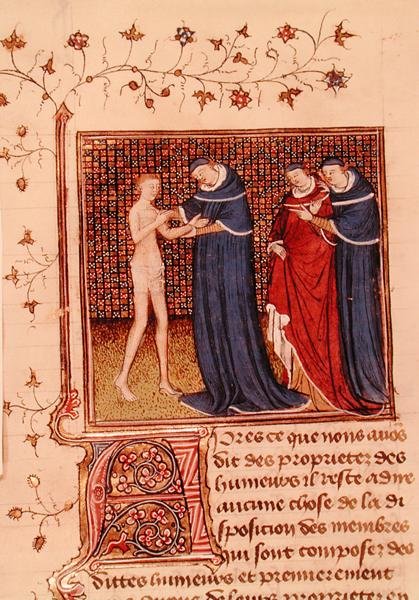 Apres ce que nous auõs
dit des proprietez des
humeurs il reste a dire
aucune chose de la di
sposition des membres
qui sont composez des
dittes humeurs et premierement
de leurs proprietez en